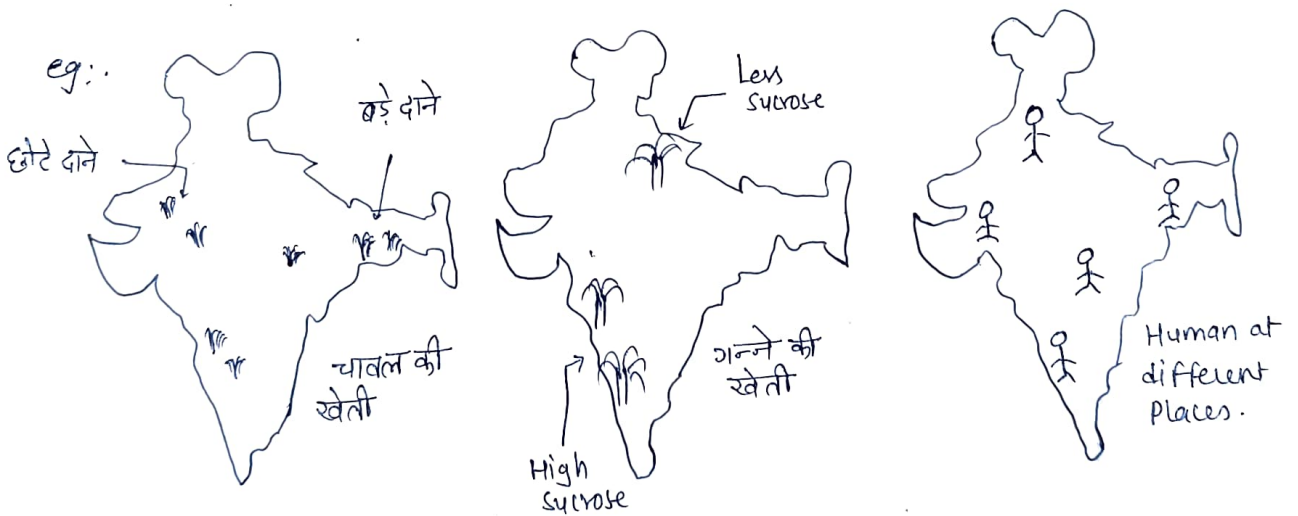 eg:.
छोटे दाने
बड़े दाने
चावल की
खेती
Less
sucrose
High
sucrose
गन्ने की
खेती
Human at
different
Places.